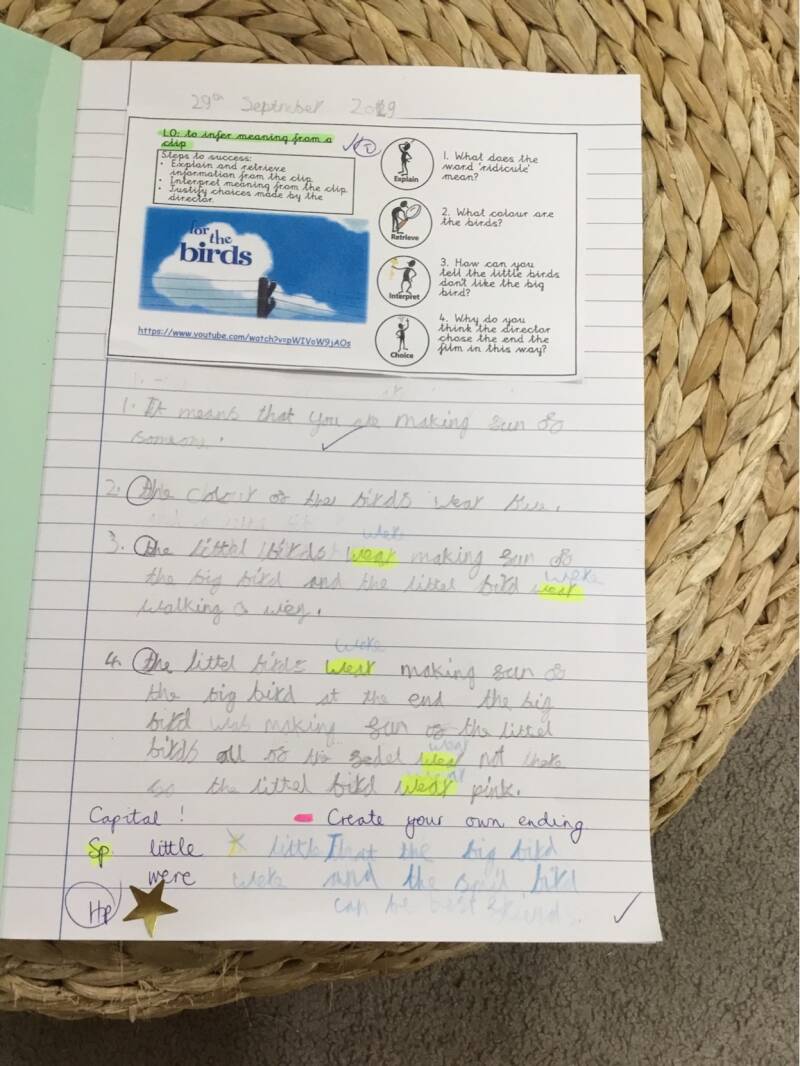 29th September 2019
LO: to infer meaning from a
clip
Steps to success:
• Explain and retrieve
information from the clip
• Interpret meaning from the clip
• Justify choices made by the
director.
for
the
birds
https://www.youtube.com/watch?v=pWIVoW9jAOs
Explain
1. What does the
word 'ridicule'
mean?
Retrieve
2. What colour are
the birds?
Interpret
3. How can you
tell the little birds
don't like the big
bird?
Choice
4. Why do you
think the director
chose the end the
film in this way?
1. It means that you are making fun of
someone.
2. the colour of the birds wear blue.
were
3. the littel birds wear making fun of
were
the big bird and the littel bird wear
walking a way.
were
4. the littel birds wear making fun of
the big bird at the end the big
bird was making fun of the littel
birds all of the wear not there
so the littel bird wear pink.
Capital !
Create your own ending
Sp little little that the big bird
were were and the bird
can be best